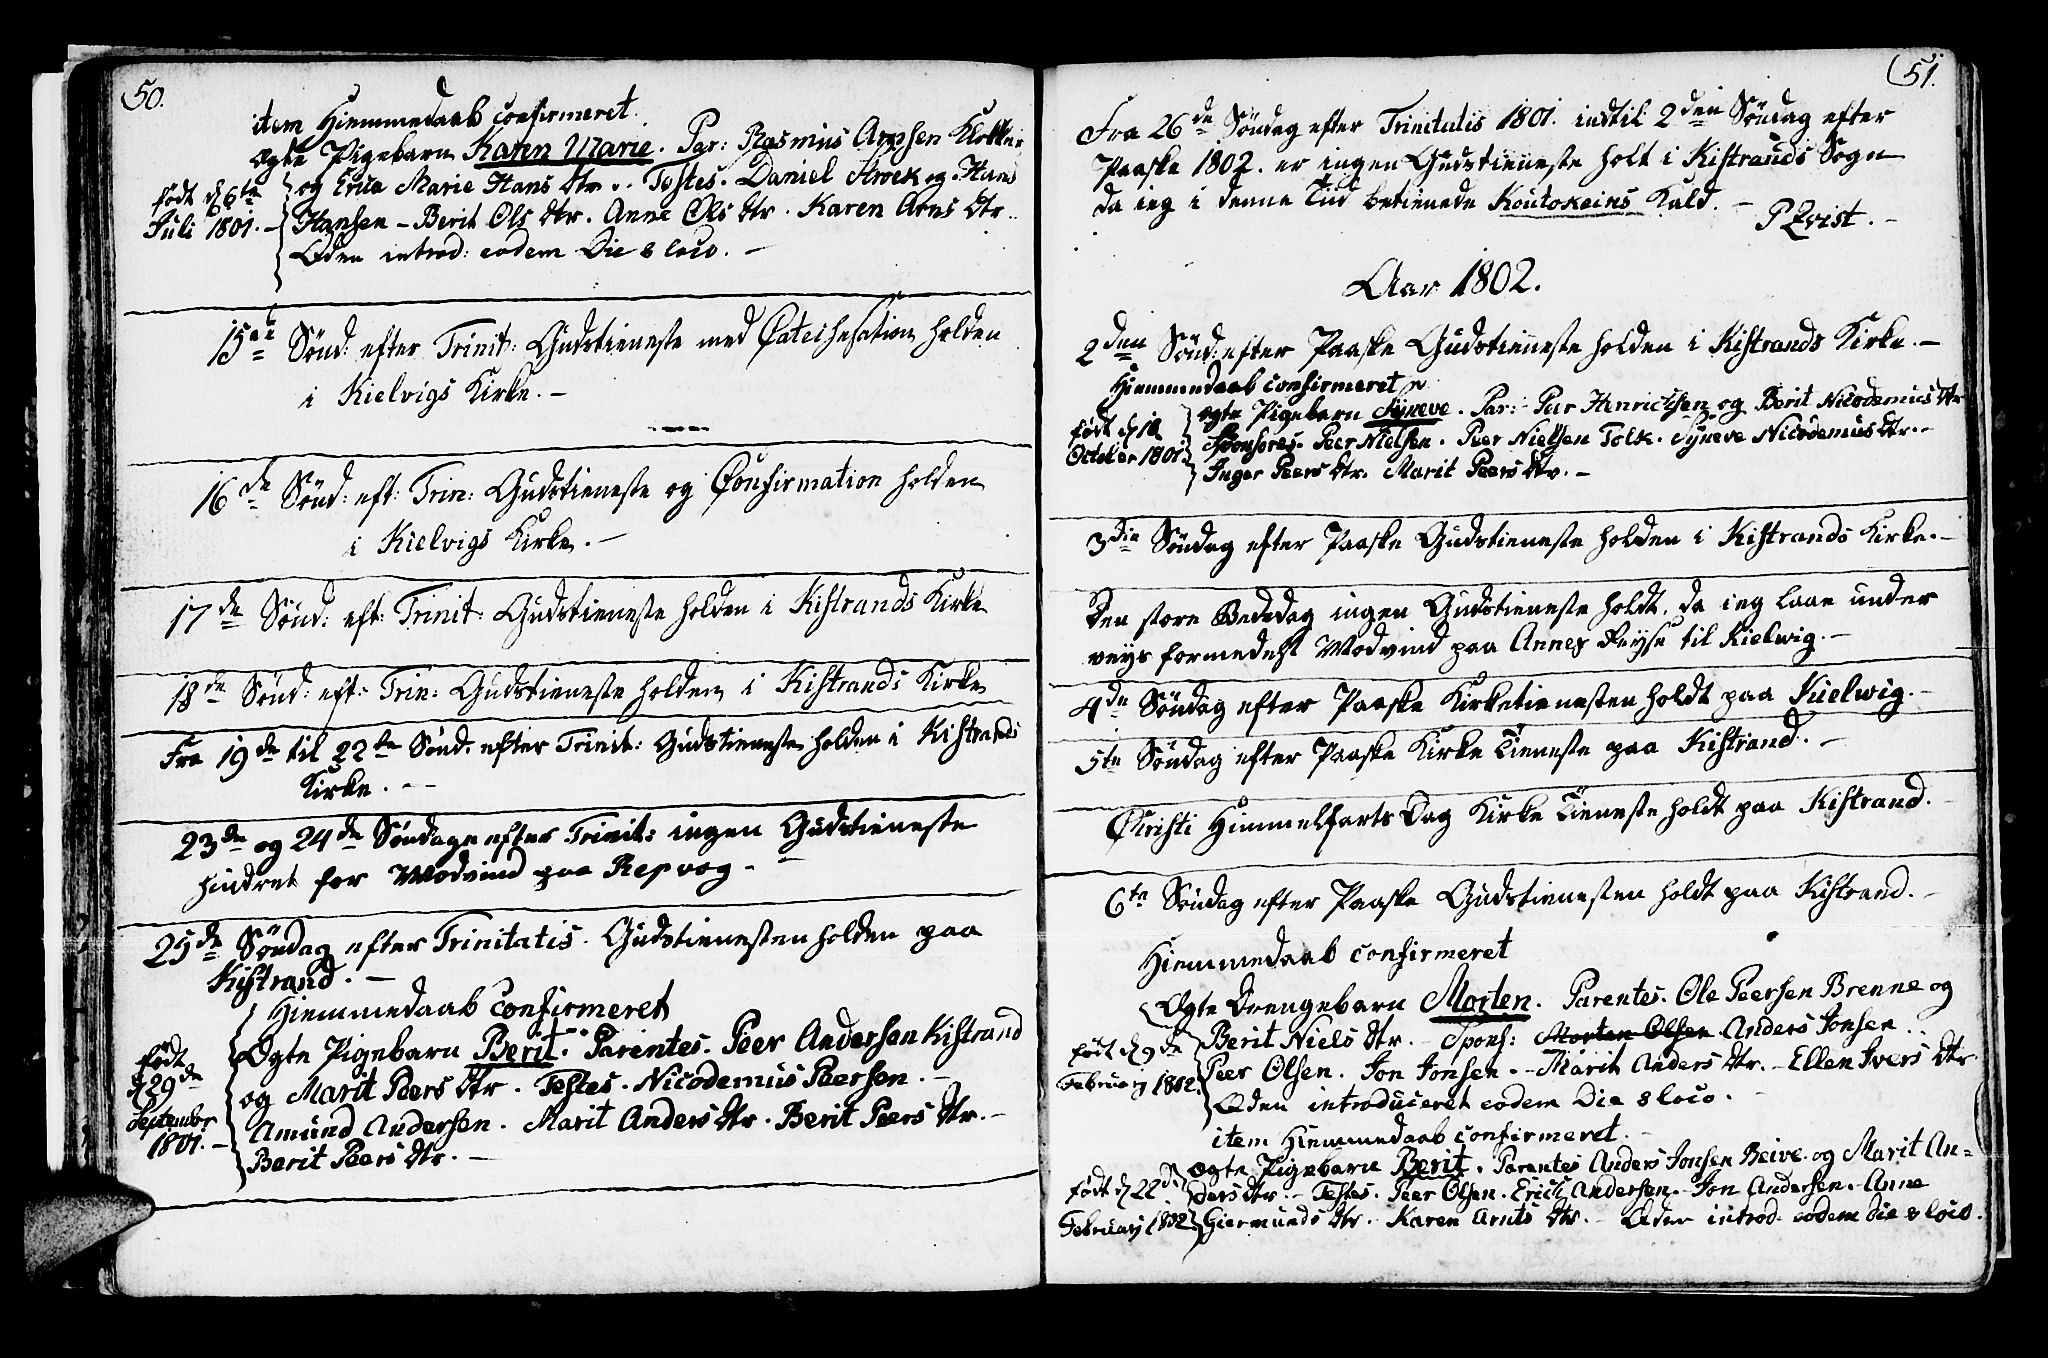 50.
item Hiemmedaab confirmeret.
Ægte Pigebarn Karen Marie. Par: Rasmus Arnsen Klokker
født d 6te
Juli 1801. -
og Erua Marie Hans Dtr. Testes. Daniel Kroek og Hans
Hansen - Berit Ols Dtr. Anne Ols Dtr. Karen Arns Dtr.
Oden introd: eodem Die & loco. -
15de Sönd: efter Trinit: Gudstieneste med Catechesation holden
i Kielvigs Kirke. -
16de Sönd: eft: Trin: Gudstieneste og Confirmation holden
i Kielvigs Kirke. -
17de Sönd: eft: Trinit: Gudstieneste holden i Kistrands Kirke
18de Sönd: eft: Trin: Gudstieneste holden i Kistrands Kirke
Fra 19de til 22de Sönd. efter Trinit: Gudstieneste holden i Kistrands
Kirke. --
23de og 24de Söndage efter Trinit: ingen Gudstieneste
hindret for Modvind paa Repvog -
25de Söndag efter Trinitatis. Gudstienesten holden paa
Kistrand. -
Hiemmedaab Confirmeret
født
d 29de
September
1801. -
Ægte Pigebarn Berit. Parentes. Peer Andersen Kistrand
og Marit Peers Dtr. Testes. Nicodemus Peersen. -
Amund Andersen. Marit Anders Dtr. Berit Peers Dtr. -
Berit Peers Dtr. -
51.
Fra 26de Söndag efter Trinitatis 1801. indtil 2den Söndag efter
Paaske 1802. er ingen Gudstieneste holt i Kistrands Sogn
da ieg i denne Tiid betienede Koutokeins Kald. -
P Qvist. -
Aar 1802.
2den Sönd: efter Paaske Gudstieneste holden i Kistrands Kirke. -
Hiemmedaab confirmeret
født d 10
October 1801.
Ægte Pigebarn Syneve. Par: Peer Henrichsen og Berit Nicodemus Dtr
Sponsores. Peer Nielsen. Peer Nielsen Tolk. Syneve Nicodemus Dtr. -
Inger Peers Dtr. Marit Peers Dtr. -
3die Söndag efter Paaske Gudstieneste holden i Kistrands Kirke. -
Den store Bededag ingen Gudstieneste holdt, da ieg laae under
veys formedelst Modvind paa Annex Reyse til Kielwig. -
4de Söndag efter Paaske Kirketienesten holdt paa Kielwig. -
5te Söndag efter Paaske Kirke Tieneste paa Kistrand. -
Christi Himmelfarts Dag Kirke Tieneste holdt paa Kistrand. -
6te Söndag efter Paaske Gudstienesten holdt paa Kistrand. -
Hiemmedaab confirmeret
født d 9de
Februarij 1802.
Ægte Drengebarn Morten. Parentes. Ole Peersen Brenne og
Berit Niels Dtr. - Spons: Morten Olsen Anders Jonsen.
Peer Olsen. Jon Jonsen. - Marit Anders Dtr. - Ellen Ivers Dtr
Oden introduceret eodem Die & loco. -
item Hiemmedaab confirmeret. -
født d 22de
Februarij 1802
Ægte Pigebarn Berit. Parentes Anders Jonsen Beive og Marit An=
ders Dtr. - Testes. Peer Olsen. Erich Andersen. Jon Andersen. Anne
Giermunds Dtr. Karen Arnts Dtr. - Oden introd. eodem die & loco.